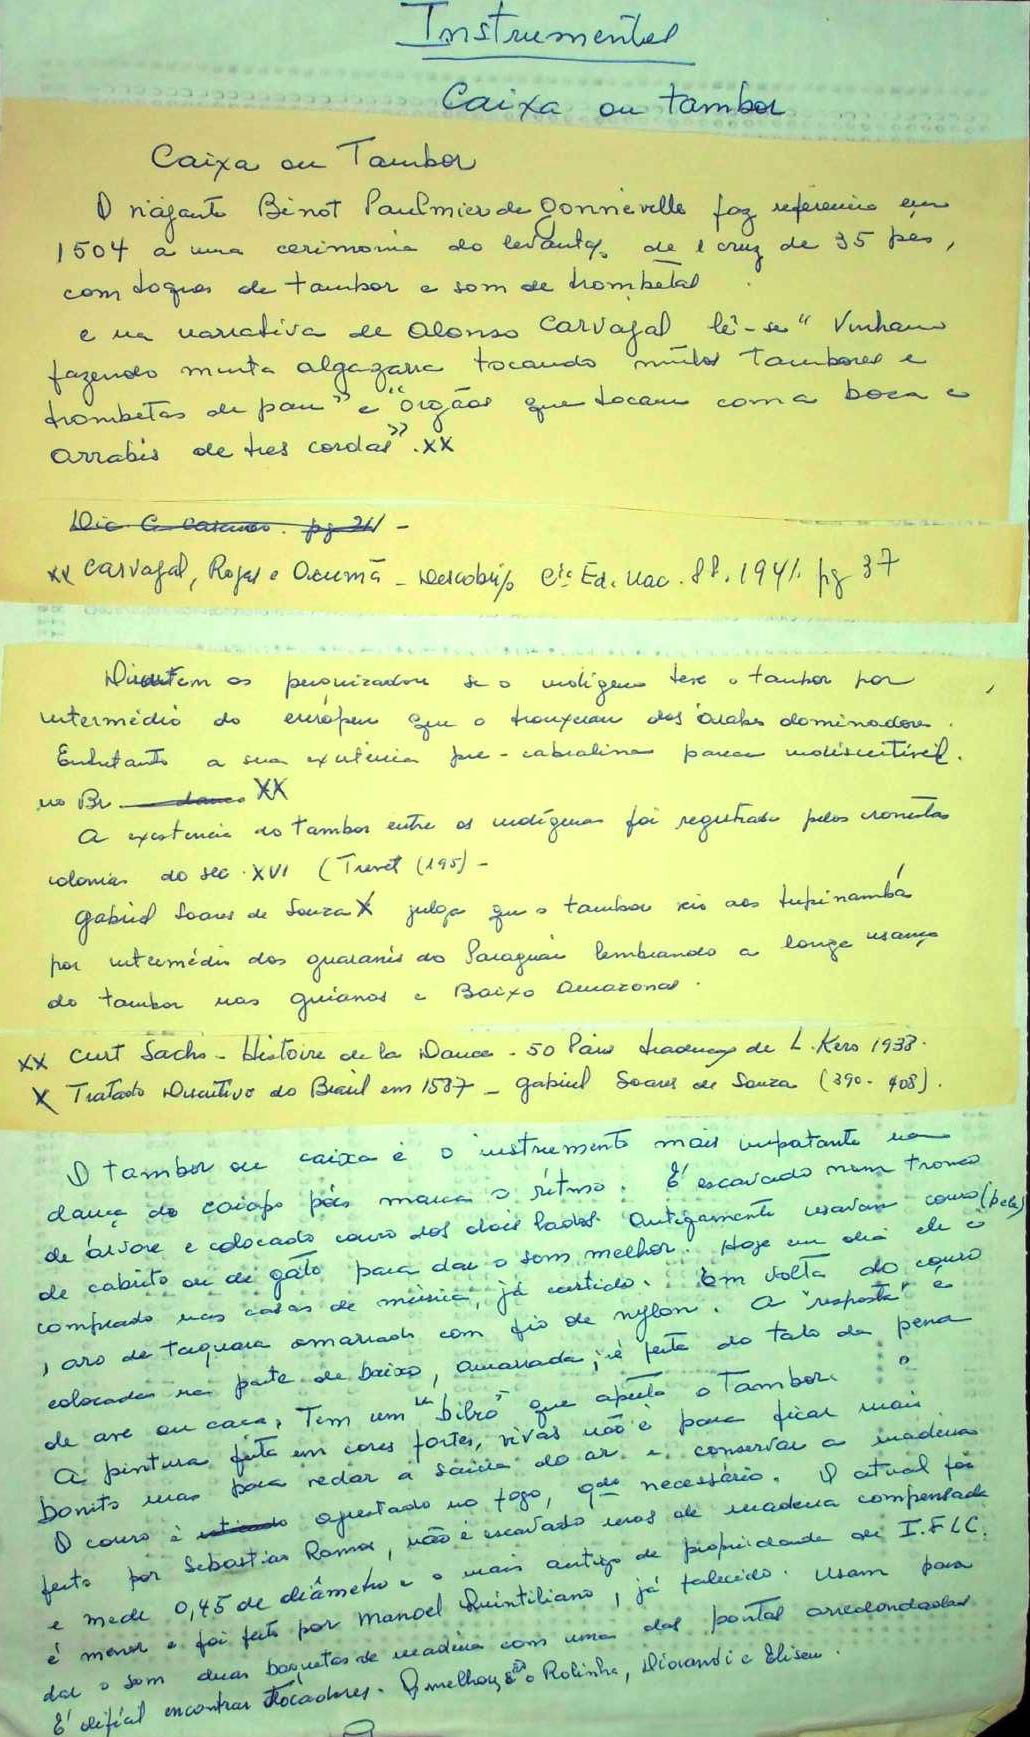 Instrumental
Caixa ou tambor
Caixa ou Tambor
O viajante Binot Paulmier de Gonneville faz referencia em
1504 a uma cerimonia do levantº de 1 cruz de 35 pés,
com toques de tambor e som de trombetas
e na narrativa de Alonso Carvajal lê-se "Vinham
fazendo muita algazarra tocando muitos tambores e
trombetas de pau" e "órgãos que tocam com a boca e
arrabis de tres cordas". xx
Dic C. Cascudo. pg 211 -
xx Carvajal, Rojas e Acunã - Descobrimº Cia Ed. Nac. SP. 1941. pg 37
Discutem os pesquizadores se o indígena teve o tambor por
intermédio do européu que o trouxeram dos árabes dominadores.
Entretanto a sua existência pre-cabralina parece indiscutível.
no Br. XX
A existencia do tambor entre os indígenas foi registrado pelos cronistas
coloniais do sec. XVI (Trevet (195) -
Gabriel Soares de Souza X julga que o tambor veio aos tupinambá
por intermédio dos guaranis do Paraguai lembrando a longe usança
do tambor nas guianas e Baixo Amazonas.
xx Curt Sachs - Histoire de la Dance - 50 Paris traduçº de L. Kers 1938.
X Tratado Descritivo do Brasil em 1587 - Gabriel Soares de Souza (390-408).
O tambor ou caixa é o instrumento mais importante na
dança do caiapó pois marca o rítmo. É escavado num tronco
de árvore e colocado couro dos dois lados. Antigamente usavam couro (pele)
de cabrito ou de gato para dar o som melhor. Hoje em dia ele é
comprado nas casas de música, já curtido. Em volta do couro
, aro de taquara amarrado com fio de nylon. A "resposta" é
colocada na parte de baixo, amarrada, é feita do talo da pena
de ave ou caça. Tem um "bilro" que aperta o Tambor.
A pintura feita em cores fortes, vivas não é para ficar mais
bonito mas para vedar a saída do ar e conservar a madeira
O couro é esticado apertado no fogo, qdo necessário. O atual foi
feito por Sebastião Ramos, não é escavado mas de madeira compensada
e mede 0,45 de diâmetro e o mais antigo de propriedade de I.F.L.C.
é menor e foi feito por Manoel Quintiliano, já falecido. Usam para
dar o som duas baquetas de madeira com uma das pontas arredondadas
É difícil encontrar tocadores. Os melhores são o Rolinha, Diorandi e Eliseu.